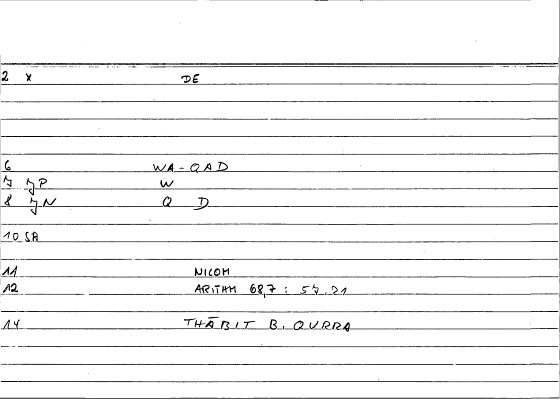 2 x DE
6 WA-QAD
7 JP W
8 JN Q D
10 SA
11 NICOM
12 ARITHM 68,7 : 57.21
14 THĀBIT B. QURRA